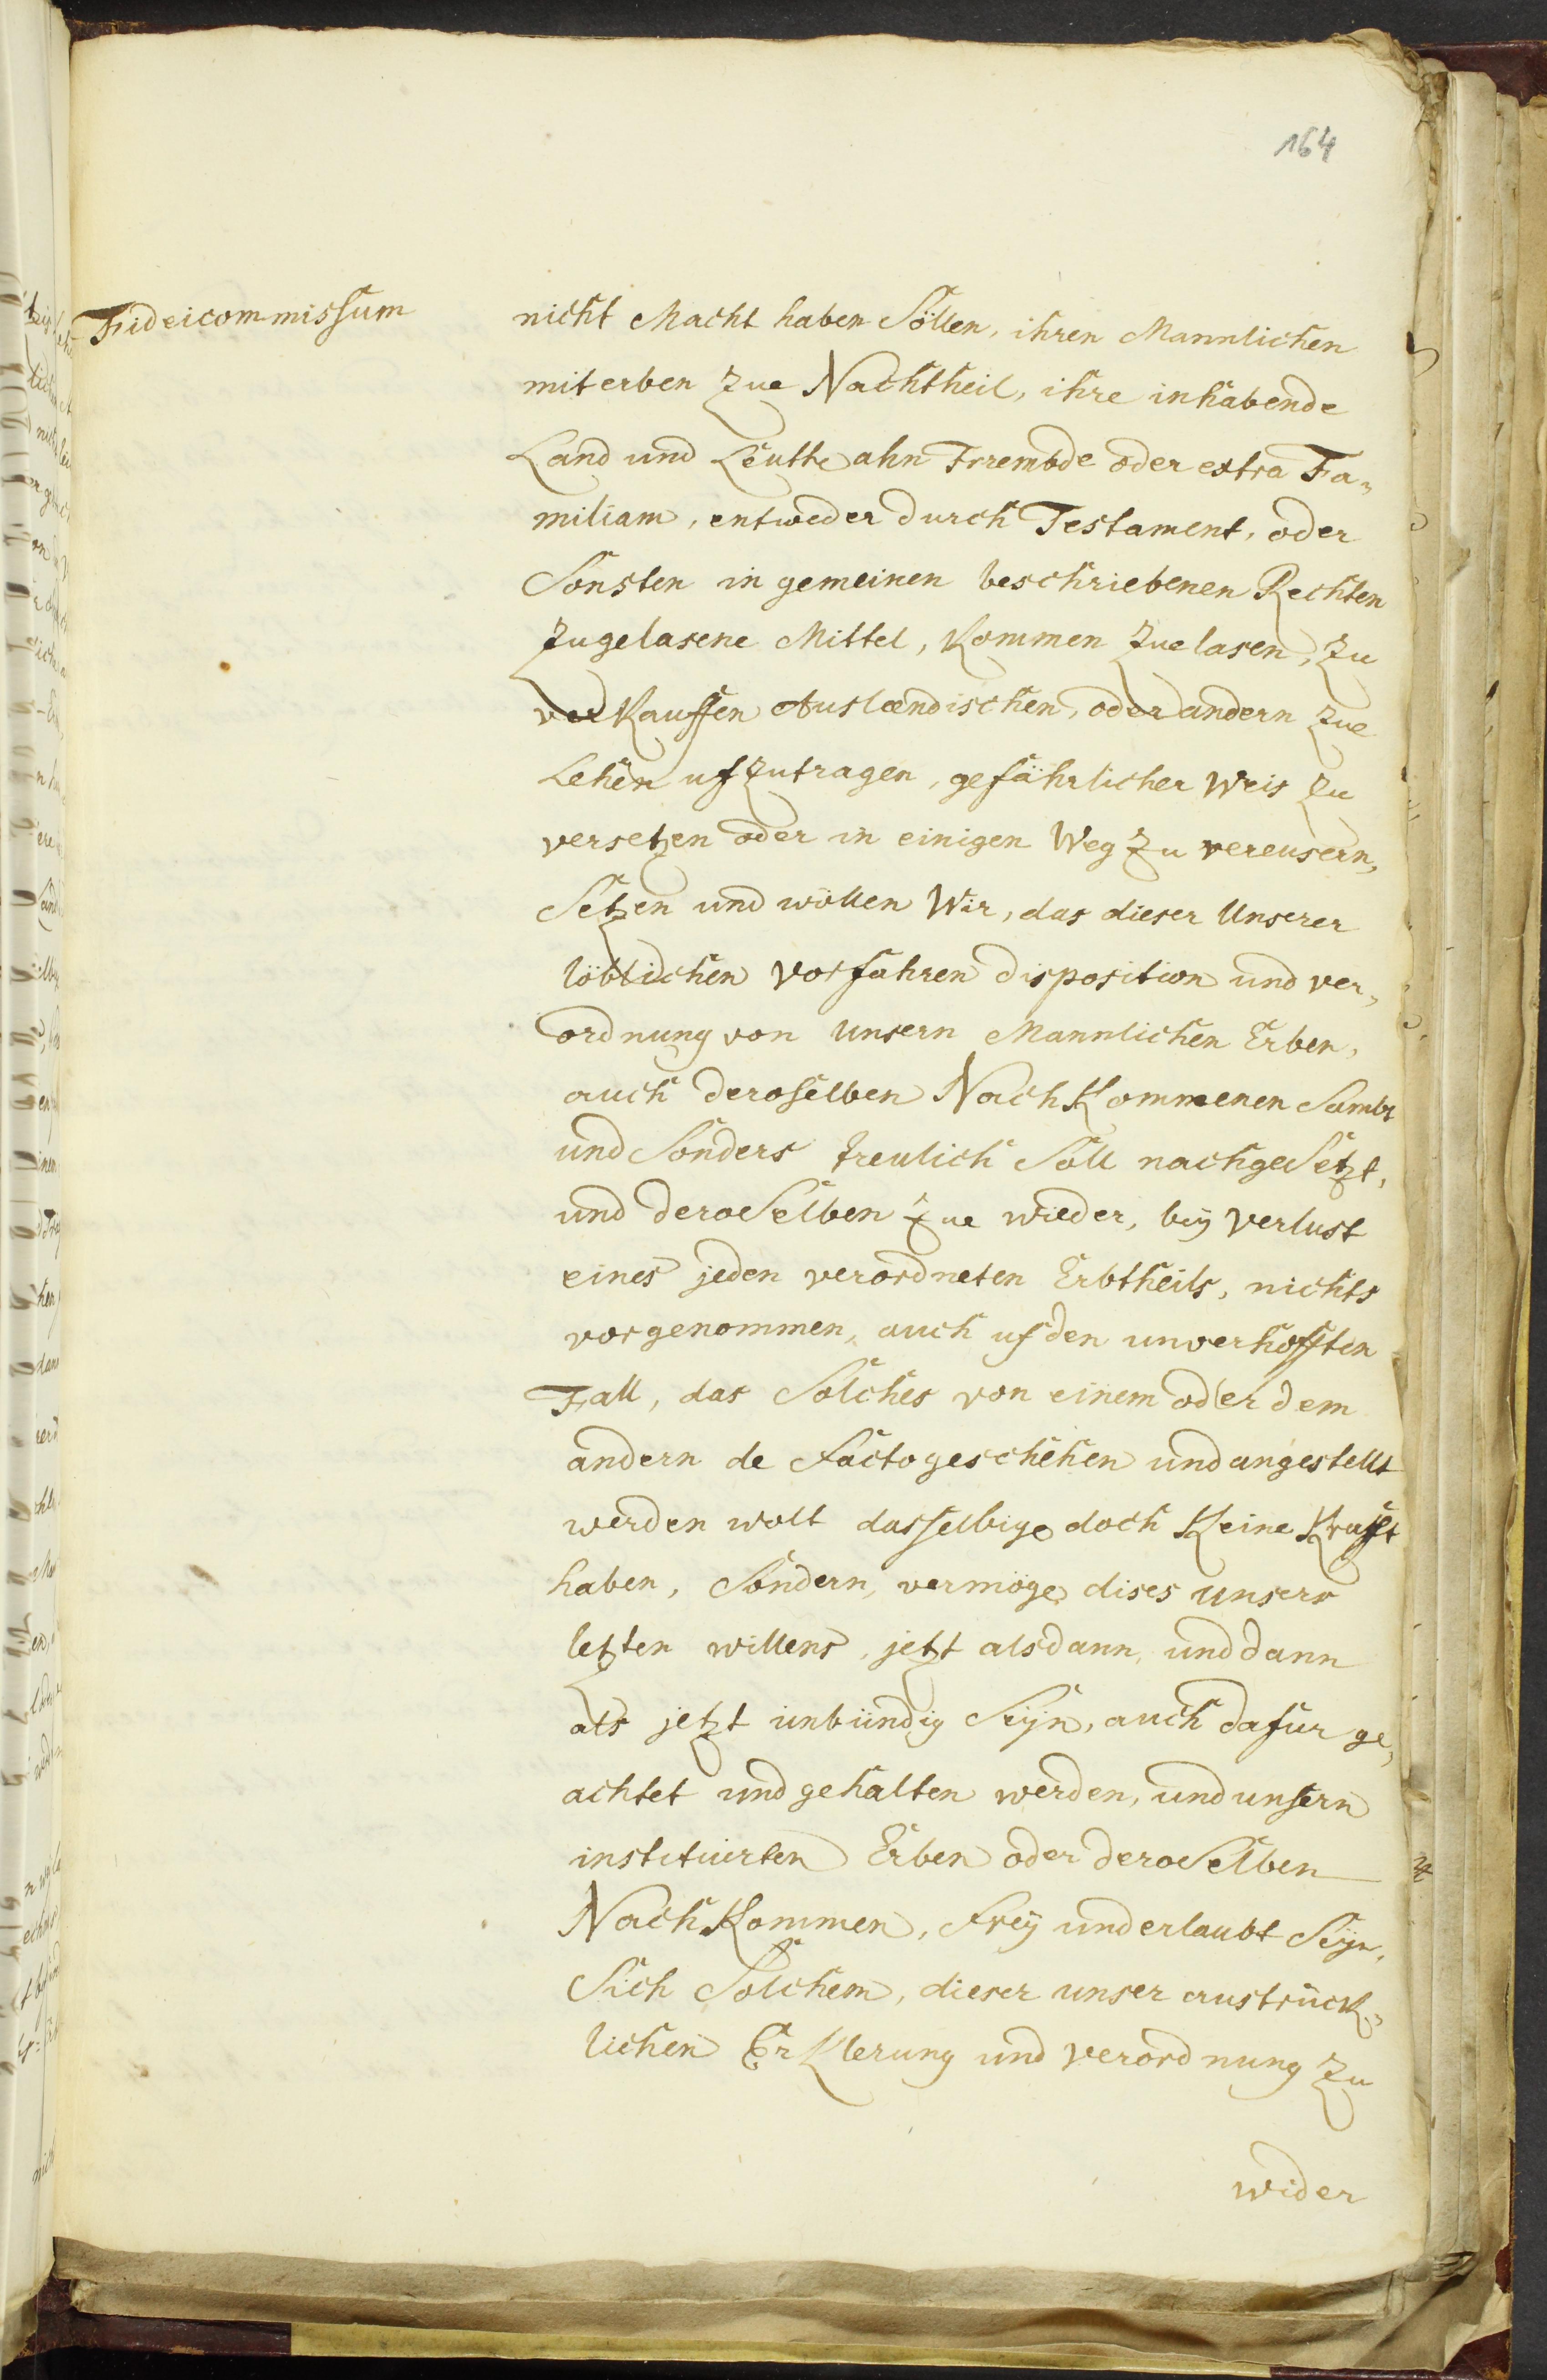 164
Fideicommissum
nicht Macht haben Söllen, ihren Mannlichen
miterben zue Nachtheil, ihre inhabende
Land und Leuthe ahn Frembde oder extra Fa„
miliam, entweder durch Testament, oder
Sonsten in gemeinen beschriebenen Rechten
zugelasene Mittel, Kommen zue lasen, zu
verKauffen Auslændischen, oder andern zue
Lehen uf zutragen, gefährlicher Weis zu
versetzen oder in einigen Weg zu vereusern,
Setzen und wöllen Wir, das dieser Unserer
löblichen Vorfahren disposition und ver„
ordnung von unsern Mannlichen Erben,
auch deroselben NachKommenen Sambt
und Sonders treulich Soll nachgeSetzt,
und deroSelben zue wieder, beÿ Verlust
eines jeden verordneten Erbtheils, nichts
vorgenommen, auch uf den unverhofften
Fall, das Solches von einem oder dem
andern de facto geschehen und angestellt
werden wolt dasselbige doch Keine Krafft
haben, Sondern, vermöge dises unsers
letzten willens, jetzt alsdann, und dann
als jetzt unbündig Seÿn, auch dafür ge„
achtet und gehalten werden, und unsern
instituierten Erben oder deroSelben
NachKommen, freÿ und erlaubt Seÿn,
Sich Solchem, dieser unser austrück„
lichen ErKlerung und Verordnung zu
wider